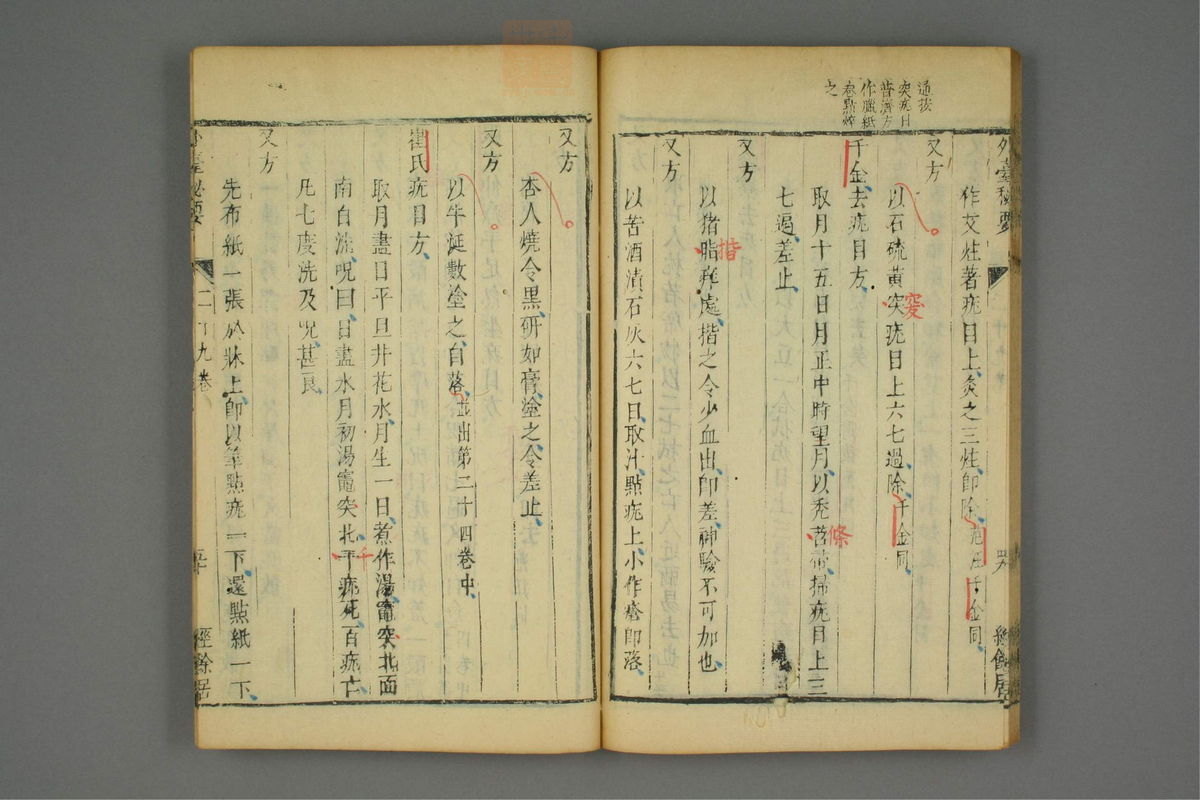 外臺秘要
作艾炷著疣目上灸之三炷即除
千金同
又方
以石硫黃突疣目上六七過除千金同
千金去疣目方
取月十五日月正中時望月以禿苕箒掃疣目上三
七遍差止
又方
以猪脂痒處揩之令少血出即差神驗不可加也
又方
以苦酒漬石灰六七日取汁點疣上小作瘡即落
通按
突疣目
普濟方
作蠟紙
卷點焠
之
揩
窔
條
又方
杏人燒令黑研如膏塗之令差止
又方
以牛涎數塗之自落並出第二十四卷中
崔氏疣目方
取月盡日平旦井花水月生一日煮作湯竈突北面
南自洗呪曰日盡水月初湯竈突北平疣死百疣亡
凡七度洗及呪甚良
又方
先布紙一張於牀上即以筆點疣一下還點紙一下
千
外臺秘要
二十九卷
經餘居